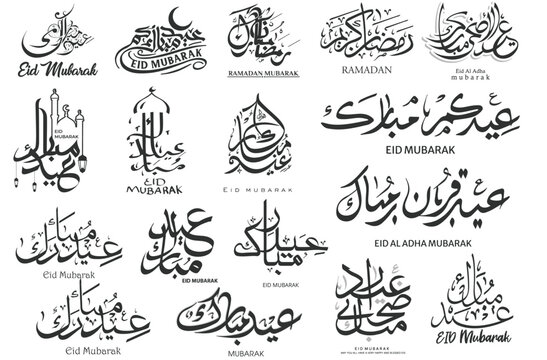 Eid Mubarak
EID MUBARAK
RAMADAN MUBARAK
رمضان كريم
RAMADAN
عيد الأضحى مبارك
Eid Al Adha
mubarak
عيد مبارك
EID
MUBARAK
عيد مبارك
EID
MUBARAK
عيد مبارك
EID MUBARAK
عيدكم مبارك
EID MUBARAK
عيد قربان مبارك
EID AL ADHA MUBARAK
عيد مبارك
Eid Mubarak
عيد مبارك
EID MUBARAK
عيد مبارك
EID MUBARAK
عيد مبارك
Eid Mubarak
عيد مبارك
MUBARAK
EID MUBARAK
MAY YOU ALL HAVE A VERY HAPPY AND BLESSED EID
عيد مبارك
EID Mubarak